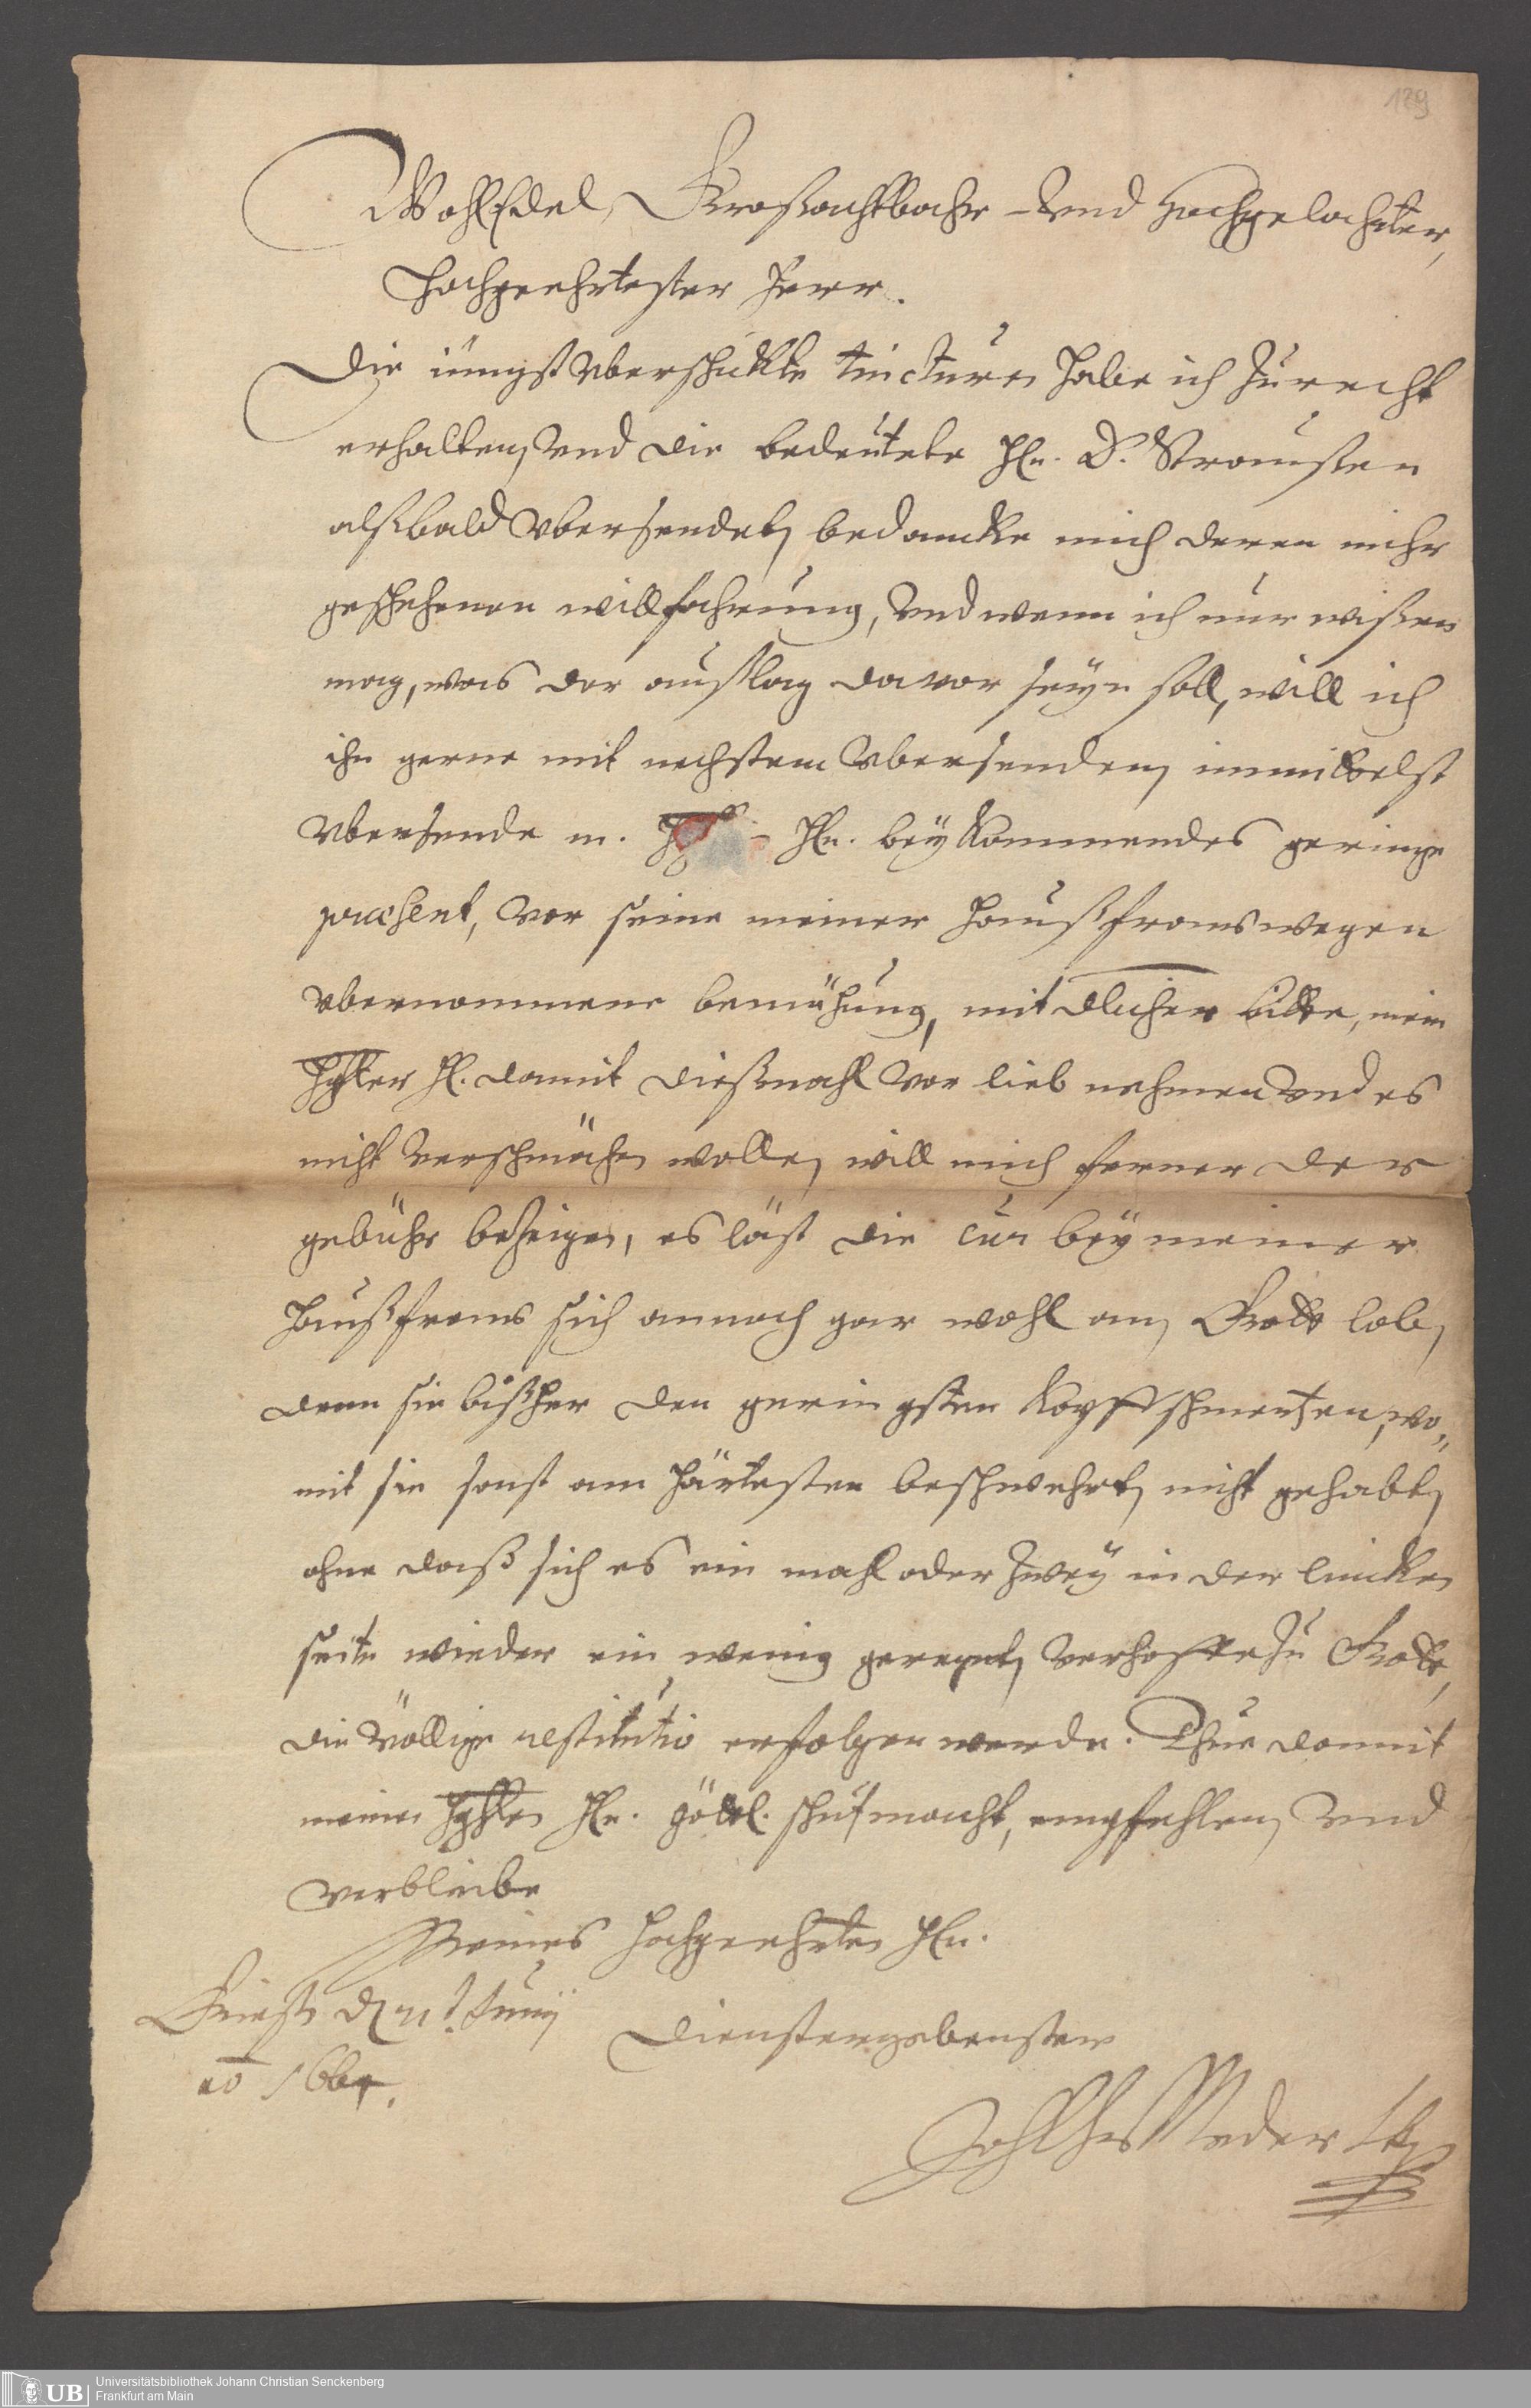 129
WohlEdel, Großachtbahr- Vnd Hochgelahrter,
Hochgeehrtester Herr.
Die iüngst Vberschickte tincturen habe ich zurecht
erhalten, Vnd die bedeutete Hln. D. Straußen
alßbald Vbersendet, bedancke mich deren mihr
geschehenen willfahrung, Vnd wenn ich nur wißen
mag, was der außlag davor seÿn soll, will ich
ihn gerne mit nechstem Vbersenden, immittelst
Vbersende m. Hln. beÿkommendes geringe
præsent, Vor seine meiner Haußfraw wegen
Vbernommene bemühung, mit dlicher bitte, mein
Hghter Hl. damit dießmahl Vor lieb nehmen Vnd es
nicht Verschmähen wolle, will mich ferner der
gebühr bezeigen, es läst die cur beÿ meiner
Haußfraw sich annoch gar wohl an, Gott lob,
denn sie bißher den geringsten Kopffschmertzen, wo„
mit sie sonst am härtesten beschwehrt, nicht gehabt,
ohne daß sich es ein mahl oder zweÿ in der lincken
seite wieder ein wenig geregnet, Verhoffe zu Gott,
die Völlige restitutio erfolgen werde. Thue damit
meinen Hghten Hln. göttl. schutzmacht, empfehlen, Vnd
Verbleibe
Meines Hochgeehrten Hln.
d 21t. Junij
ao 166
Dienstergebenster
Universitätsbibliothek Johann Christian Senckenberg
UB Frankfurt am Main